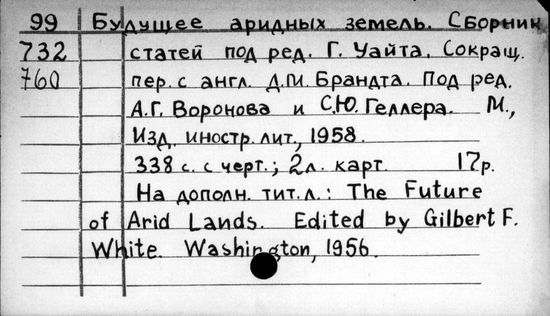 99 Будущее аридных земель. Сборник
732 статей под ред. Г. Уайта. Сокращ.
760 пер. с англ. Д.И. Брандта. Под ред.
А.Г. Воронова и С.Ю. Геллера. М.,
Изд. иностр. лит., 1958.
338 с. с черт.; 2л. карт. 17р.
На дополн. тит. л.: The Future
of Arid Lands. Edited by Gilbert F.
White. Washington, 1956.